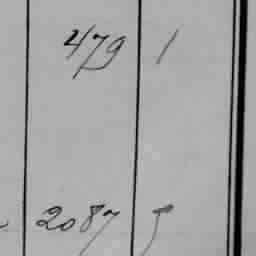 479 1
2087